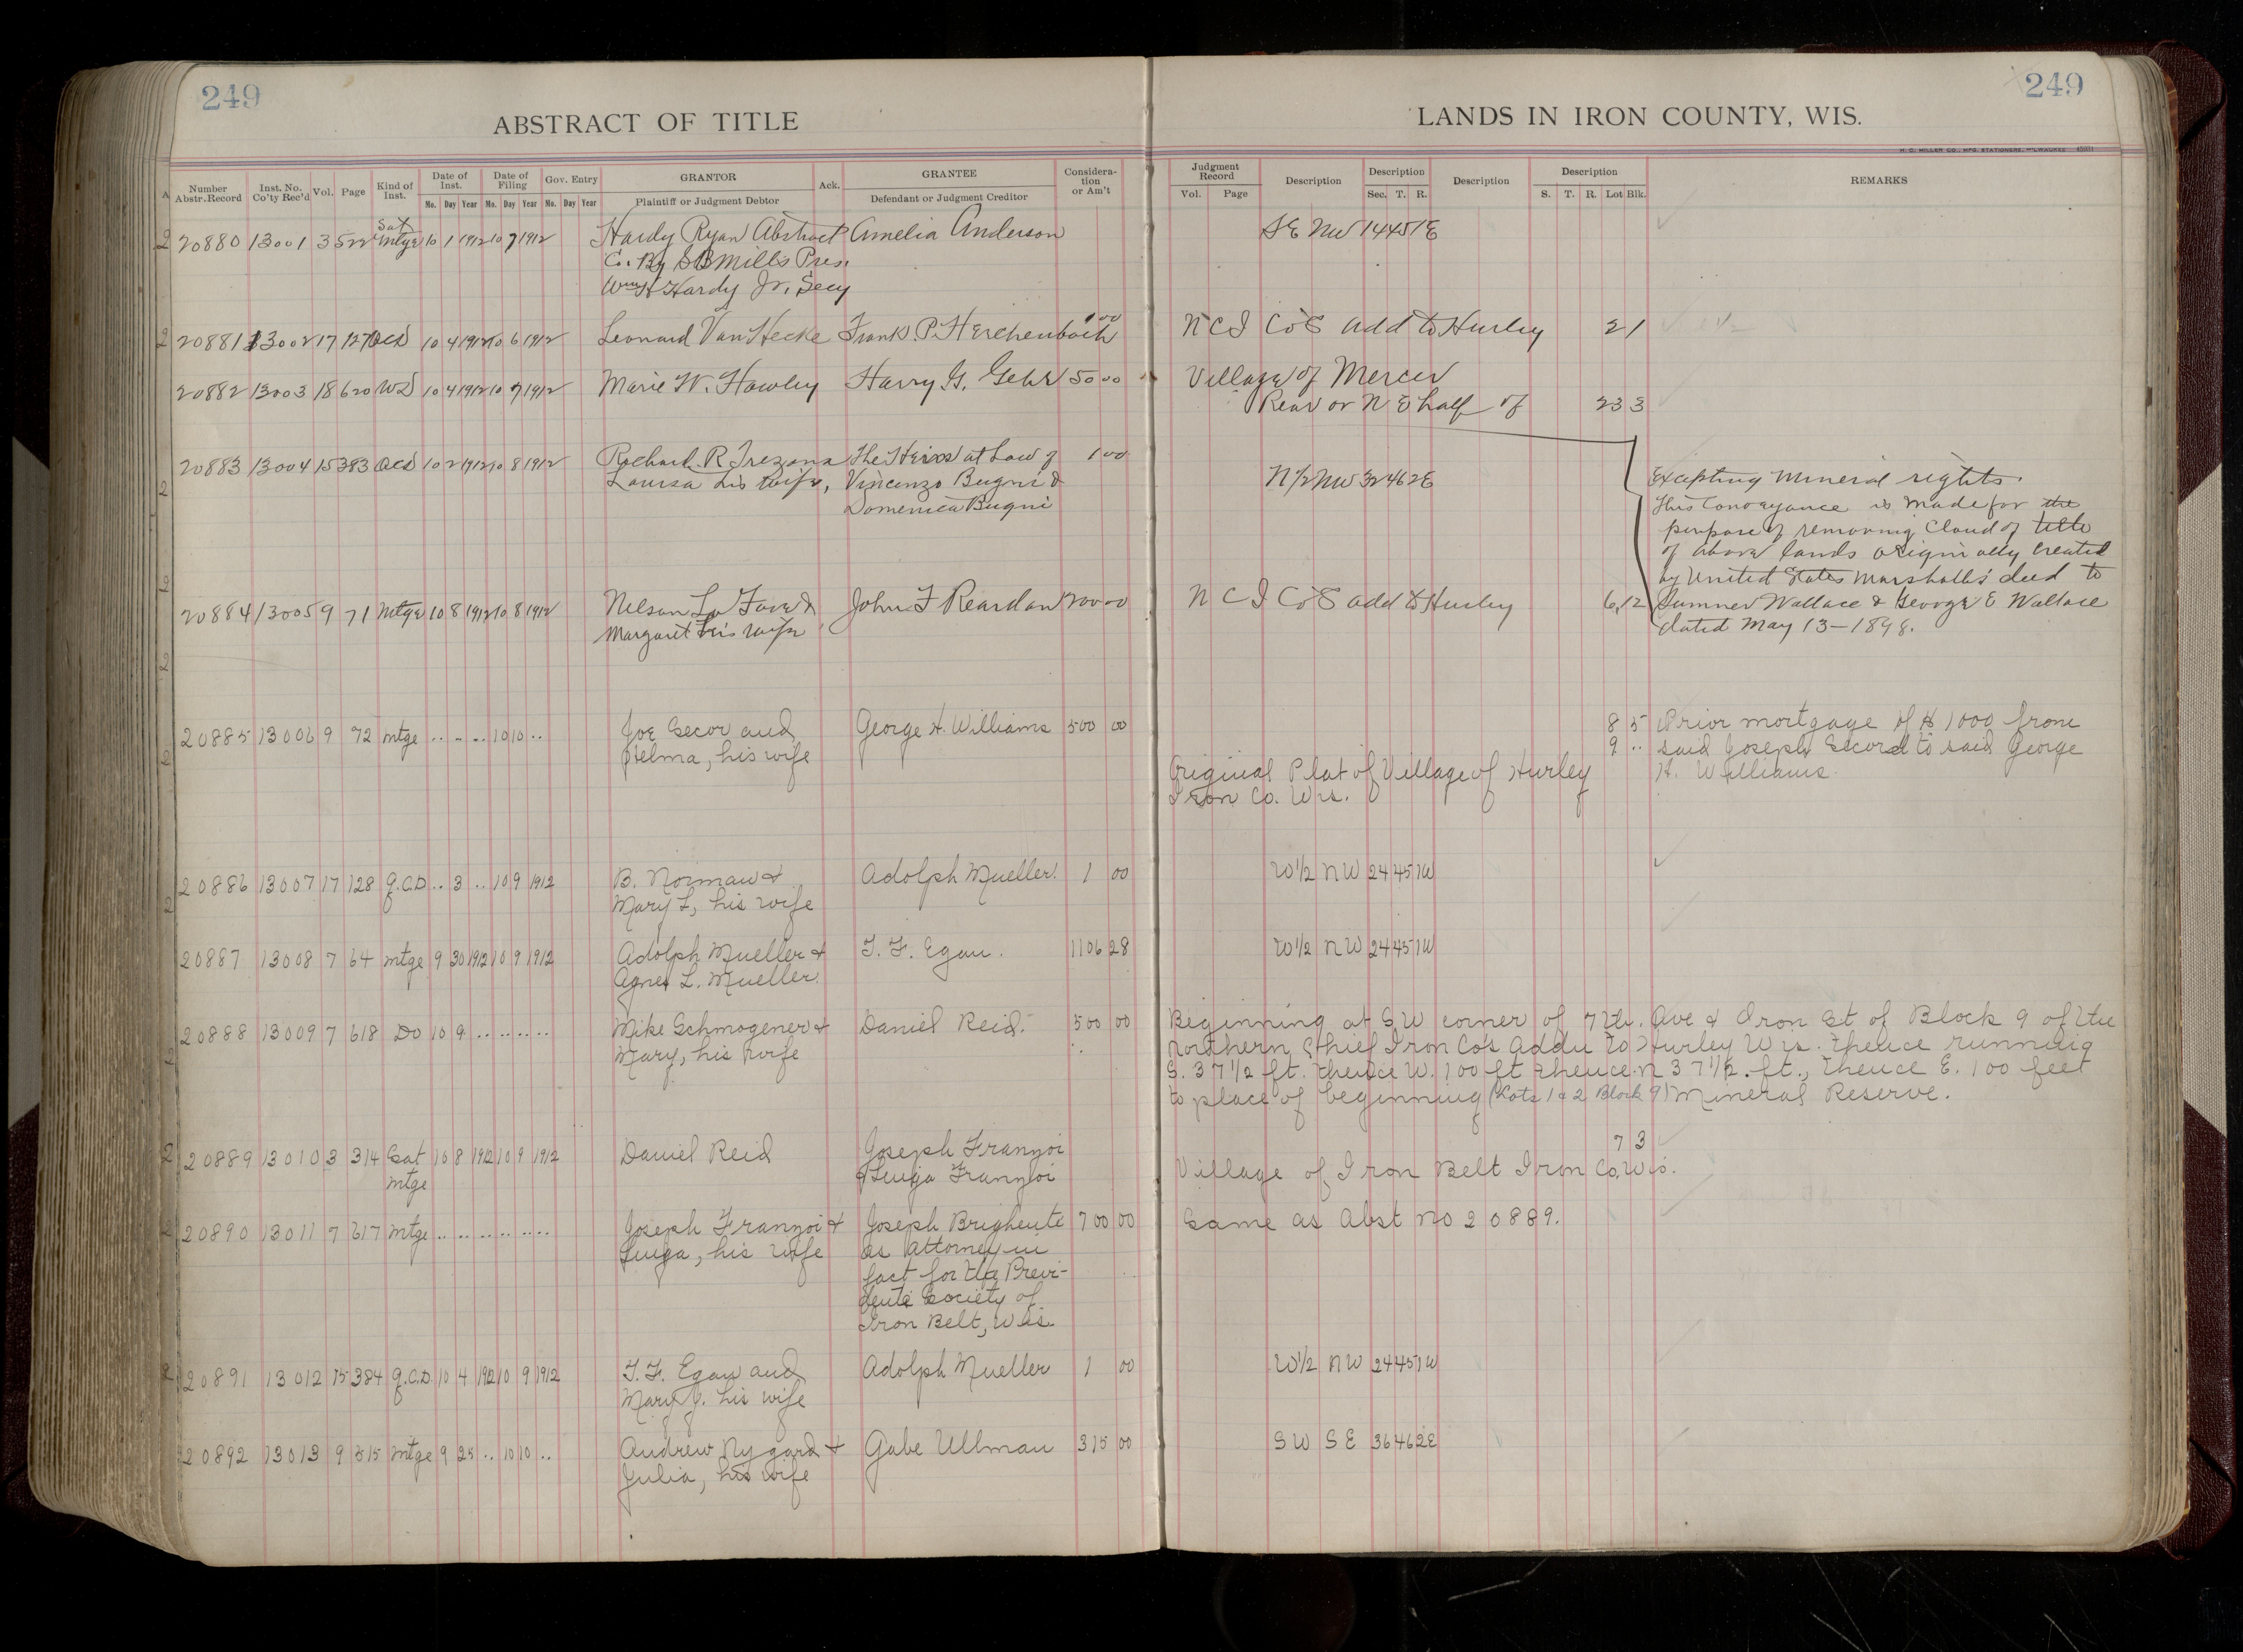 249
249
ABSTRACT OF TITLE
LANDS IN IRON COUNTY, WIS.
H. C. MILLER CO., MFG. STATIONERS, MILWAUKEE
A Number Abstr. Record Inst. No. Co'ty Rec'd Vol. Page Kind of Inst. Date of Inst. Mo. Day Year Date of Filing Mo. Day Year Gov. Entry Mo. Day Year GRANTOR Plaintiff or Judgment Debtor Ack. GRANTEE Defendant or Judgment Creditor Consideration or Am't
Judgment Record Vol. Page Description Description Sec. T. R. Description Description S. T. R. Lot Blk. REMARKS
Sat
20880 13001 3 522 Mtge 10 1 1912 10 7 1912 Hardy Ryan Abstract Amelia Anderson SE NW 14 45 1E
Co. By S B Mills Pres.
Wm H Hardy Jr. Secy
20881 13002 17 127 QCD 10 4 1912 10 6 1912 Leonard Van Hecke Frank P. Herchenbach 1 00 N C I Co's add to Hurley 2 1
20882 13003 18 620 WD 10 4 1912 10 7 1912 Marie W. Hawley Harry G. Gehr 50 00 Village of Mercer
Rear or N E half of 23 3
20883 13004 15 383 QCD 10 2 1912 10 8 1912 Richard R Trezona The Heirs at Law of 1 00 N/2 NW 32 46 2E Excepting Mineral rights.
Louisa his wife, Vincenzo Bugni &
Domenica Bugni
This Conveyance is Made for the
purpose of removing Cloud of title
of above lands originally created
by United States Marshalls' deed to
Sumner Wallace & George E Wallace
dated May 13 - 1898.
20884 13005 9 71 Mtge 10 8 1912 10 8 1912 Nelson La Fave & John F Reardan 200 00 N C I Co's add to Hurley 6, 12
Margaret his wife
20885 13006 9 72 mtge .. .. .. 10 10 .. Joe Secor and George H. Williams 500 00 8 5 Prior mortgage of $1000 from
Helma, his wife 9 .. said Joseph Secord to said George
H. Williams.
Original Plat of Village of Hurley
Iron Co. Wis.
20886 13007 17 128 Q.C.D .. 3 .. 10 9 1912 B. Norman & Adolph Mueller. 1 00 W 1/2 NW 24 45 1W
Mary L, his wife
20887 13008 7 64 mtge 9 30 1912 10 9 1912 Adolph Mueller & T. F. Egan. 1106 28 W 1/2 NW 24 45 1W
Agnes L. Mueller.
20888 13009 7 618 Do 10 9 .. .. .. .. Mike Schmogener & Daniel Reid. 500 00 Beginning at SW corner of 7th. Ave & Iron St of Block 9 of the
Mary, his wife Northern Chief Iron Co's Addn to Hurley Wis. thence running
S. 37 1/2 ft. thence W. 100 ft thence N 37 1/2 ft., thence E. 100 feet
to place of beginning (Lots 1 & 2 Block 9) Mineral Reserve.
20889 13010 3 314 Sat 10 8 1912 10 9 1912 Daniel Reid Joseph Franzoi 7 3
mtge & Luiga Franzoi Village of Iron Belt Iron Co, Wis.
20890 13011 7 617 Mtge .. .. .. .. .. .. Joseph Franzoi & Joseph Brighente 700 00 Same as Abst No 20889.
Luiga, his wife as attorney in
fact for the Previ-
dente Society of
Iron Belt, Wis.
20891 13012 15 384 Q.C.D. 10 4 1912 10 9 1912 T. F. Egan and Adolph Mueller 1 00 W 1/2 NW 24 45 1W
Mary J. his wife
20892 13013 9 515 mtge 9 25 .. 10 10 .. Andrew Nygard & Gabe Ullman 315 00 SW SE 36 46 2E
Julia, his wife